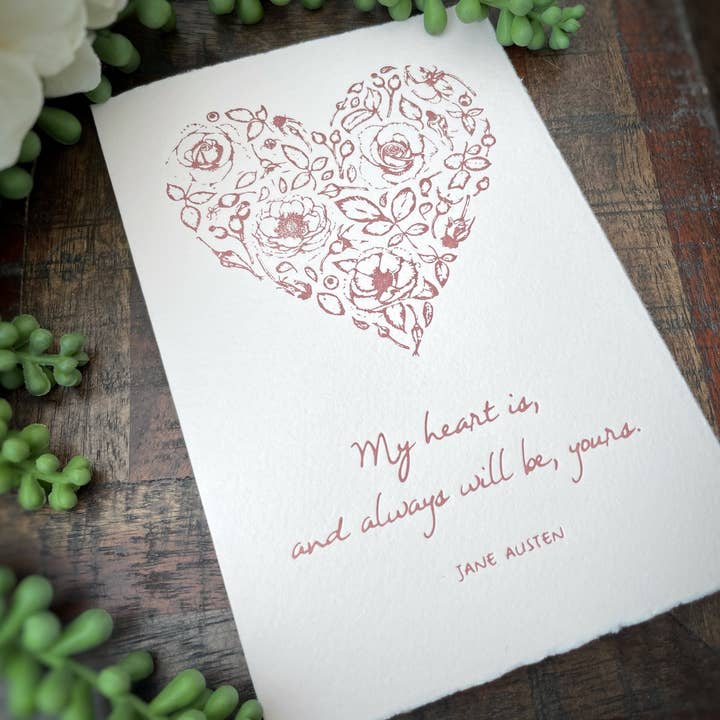 My heart is,
and always will be, yours.
JANE AUSTEN